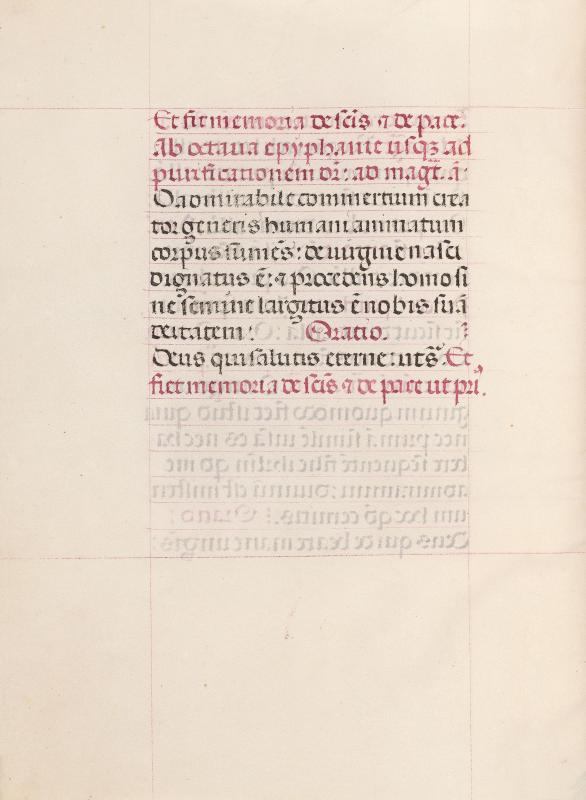 Et fit memoria de sc̄is ⁊ de pace.
Ab octaua epyphanie usqꝫ ad
purificationem dr̄: ad magt̄. ā.
O admirabile commertium crea
tor generis humani animatum
corpus sumēs: de uirgine nasci
dignatus ē: ⁊ procedens homo si
ne semine largitus ē nobis suā
deitatem: Oratio.
Deus qui salutis eterne: ut sͣ. Et
fiet memoria de sc̄is ⁊ de pace ut pri᾽.